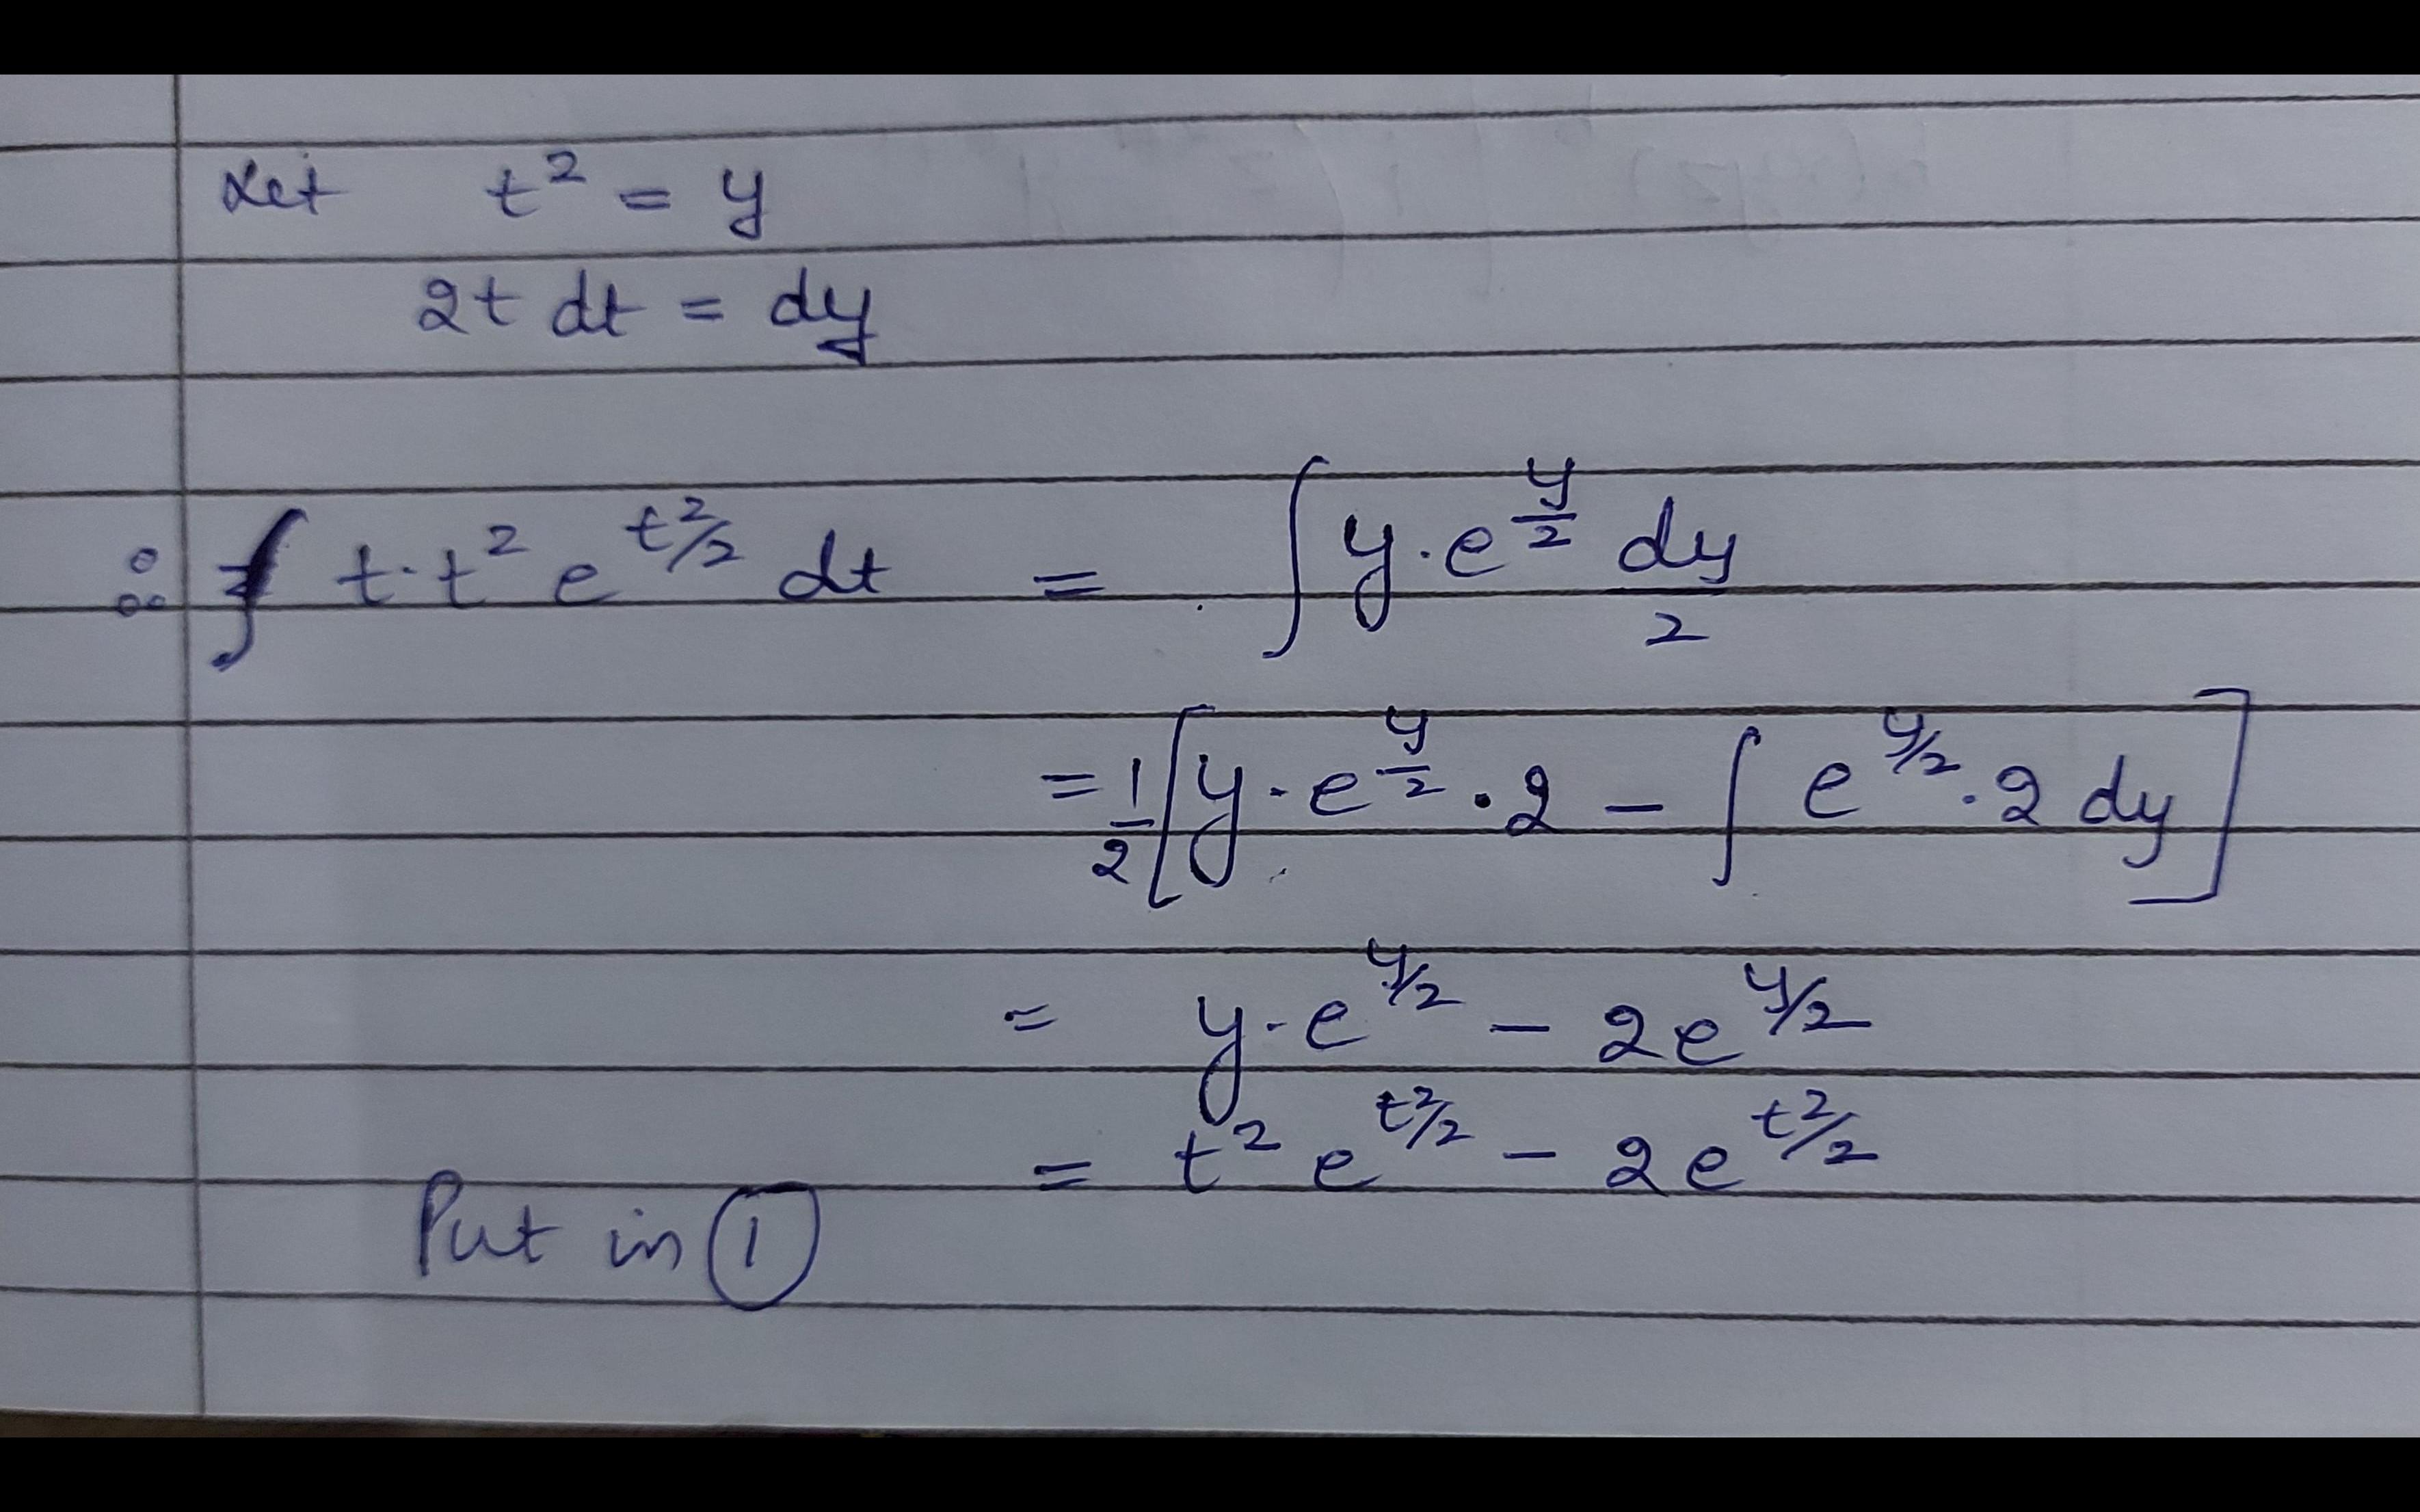 Let t² = y
2t dt = dy
∴ ∫ t·t² e^(t²/2) dt = ∫ y·e^(y/2) dy/2
= 1/2 [y·e^(y/2)·2 − ∫ e^(y/2)·2 dy]
= y·e^(y/2) − 2e^(y/2)
= t² e^(t²/2) − 2e^(t²/2)
Put in ①